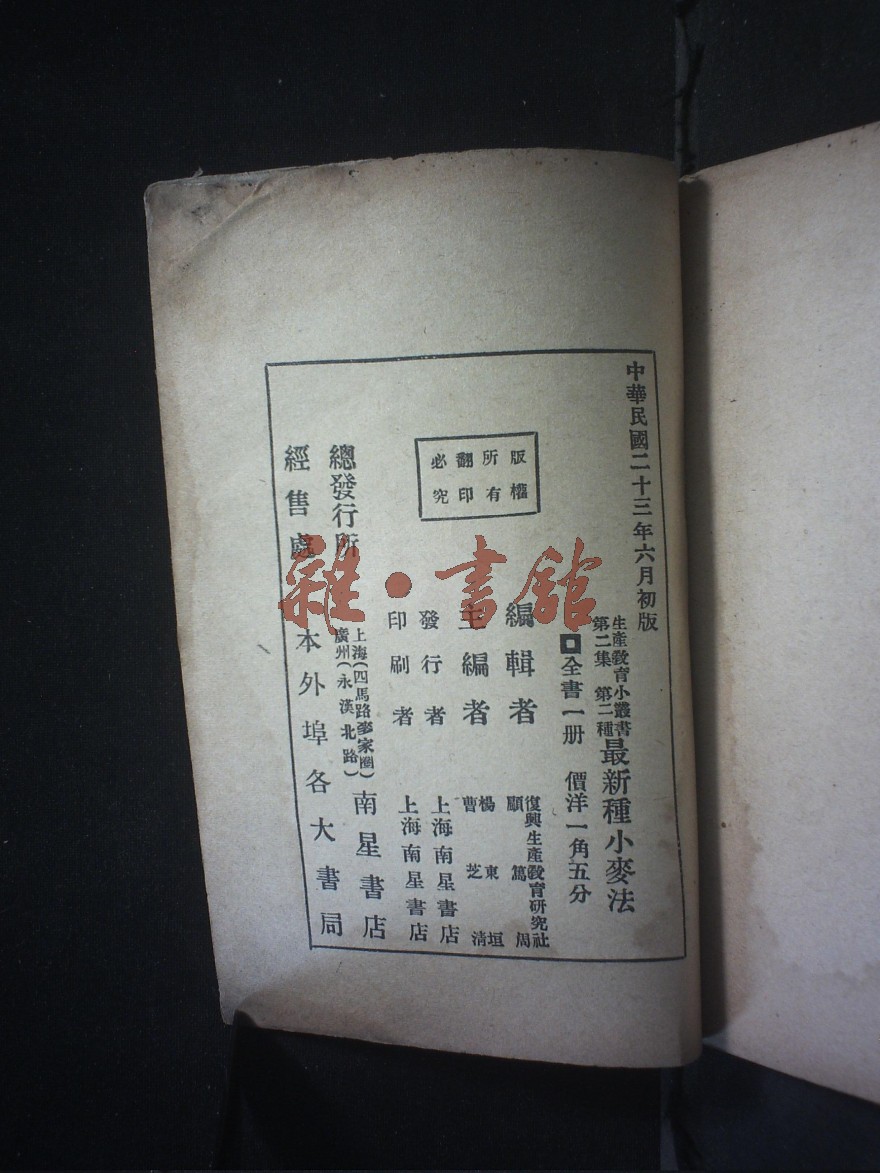 中華民國二十三年六月初版
生產教育小叢書
第二集 第二種
最新種小麥法
全書一册 價洋一角五分
版權
所有
翻印
必究
編輯者
復興生產教育研究社
顧篤周
主編者
楊東垣
曹芝清
發行者 上海南星書店
印刷者 上海南星書店
總發行所
上海(四馬路麥家圈)
廣州(永漢北路)
南星書店
經售處 本外埠各大書局
雜·書館